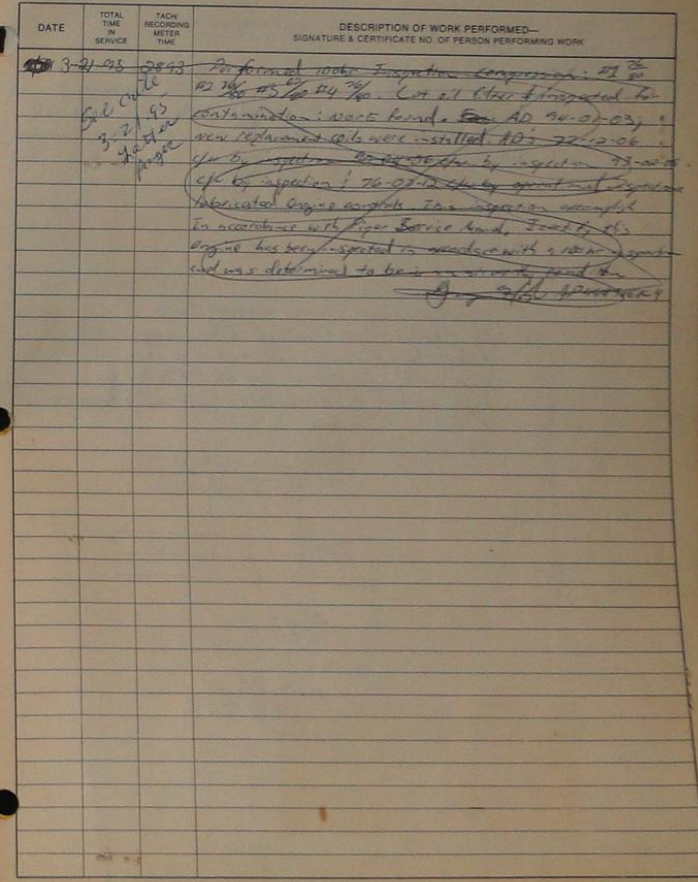 DATE
TOTAL TIME IN SERVICE
TACH/ RECORDING METER TIME
DESCRIPTION OF WORK PERFORMED—
SIGNATURE & CERTIFICATE NO. OF PERSON PERFORMING WORK
3-21-93 2893 Performed 100hr Inspection compression: #1 76/80
#2 76/80 #3 #4 76/80. Cut oil filter & inspected for
contamination: none found. AD 94-01-03;
new replacement coils were installed. AD: 72-12-06
c/w by inspection by inspection 93-02-05
c/w by inspection: 76-07-12 c/w by operational inspection
lubricated engine controls. This inspection accomplish
In accordance with Piper Service Manual, I certify this
engine has been inspected in accordance with a 100hr inspection
and was determined to be in
3-21-93
page